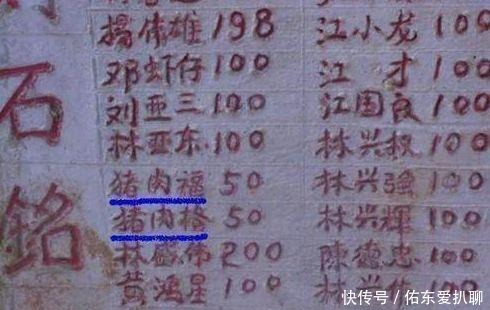 石
銘
楊伟雄 198
邓虾仔 100
刘亚三 100
林亚东 100
猪肉福 50
猪肉格 50
林盛伟 200
黄鸿星 100
江小龙 100
江才 100
江国良 100
林兴权 100
林兴強 100
林兴辉 100
陳德忠 100
林兴 100
快传号／佑东爱扒聊